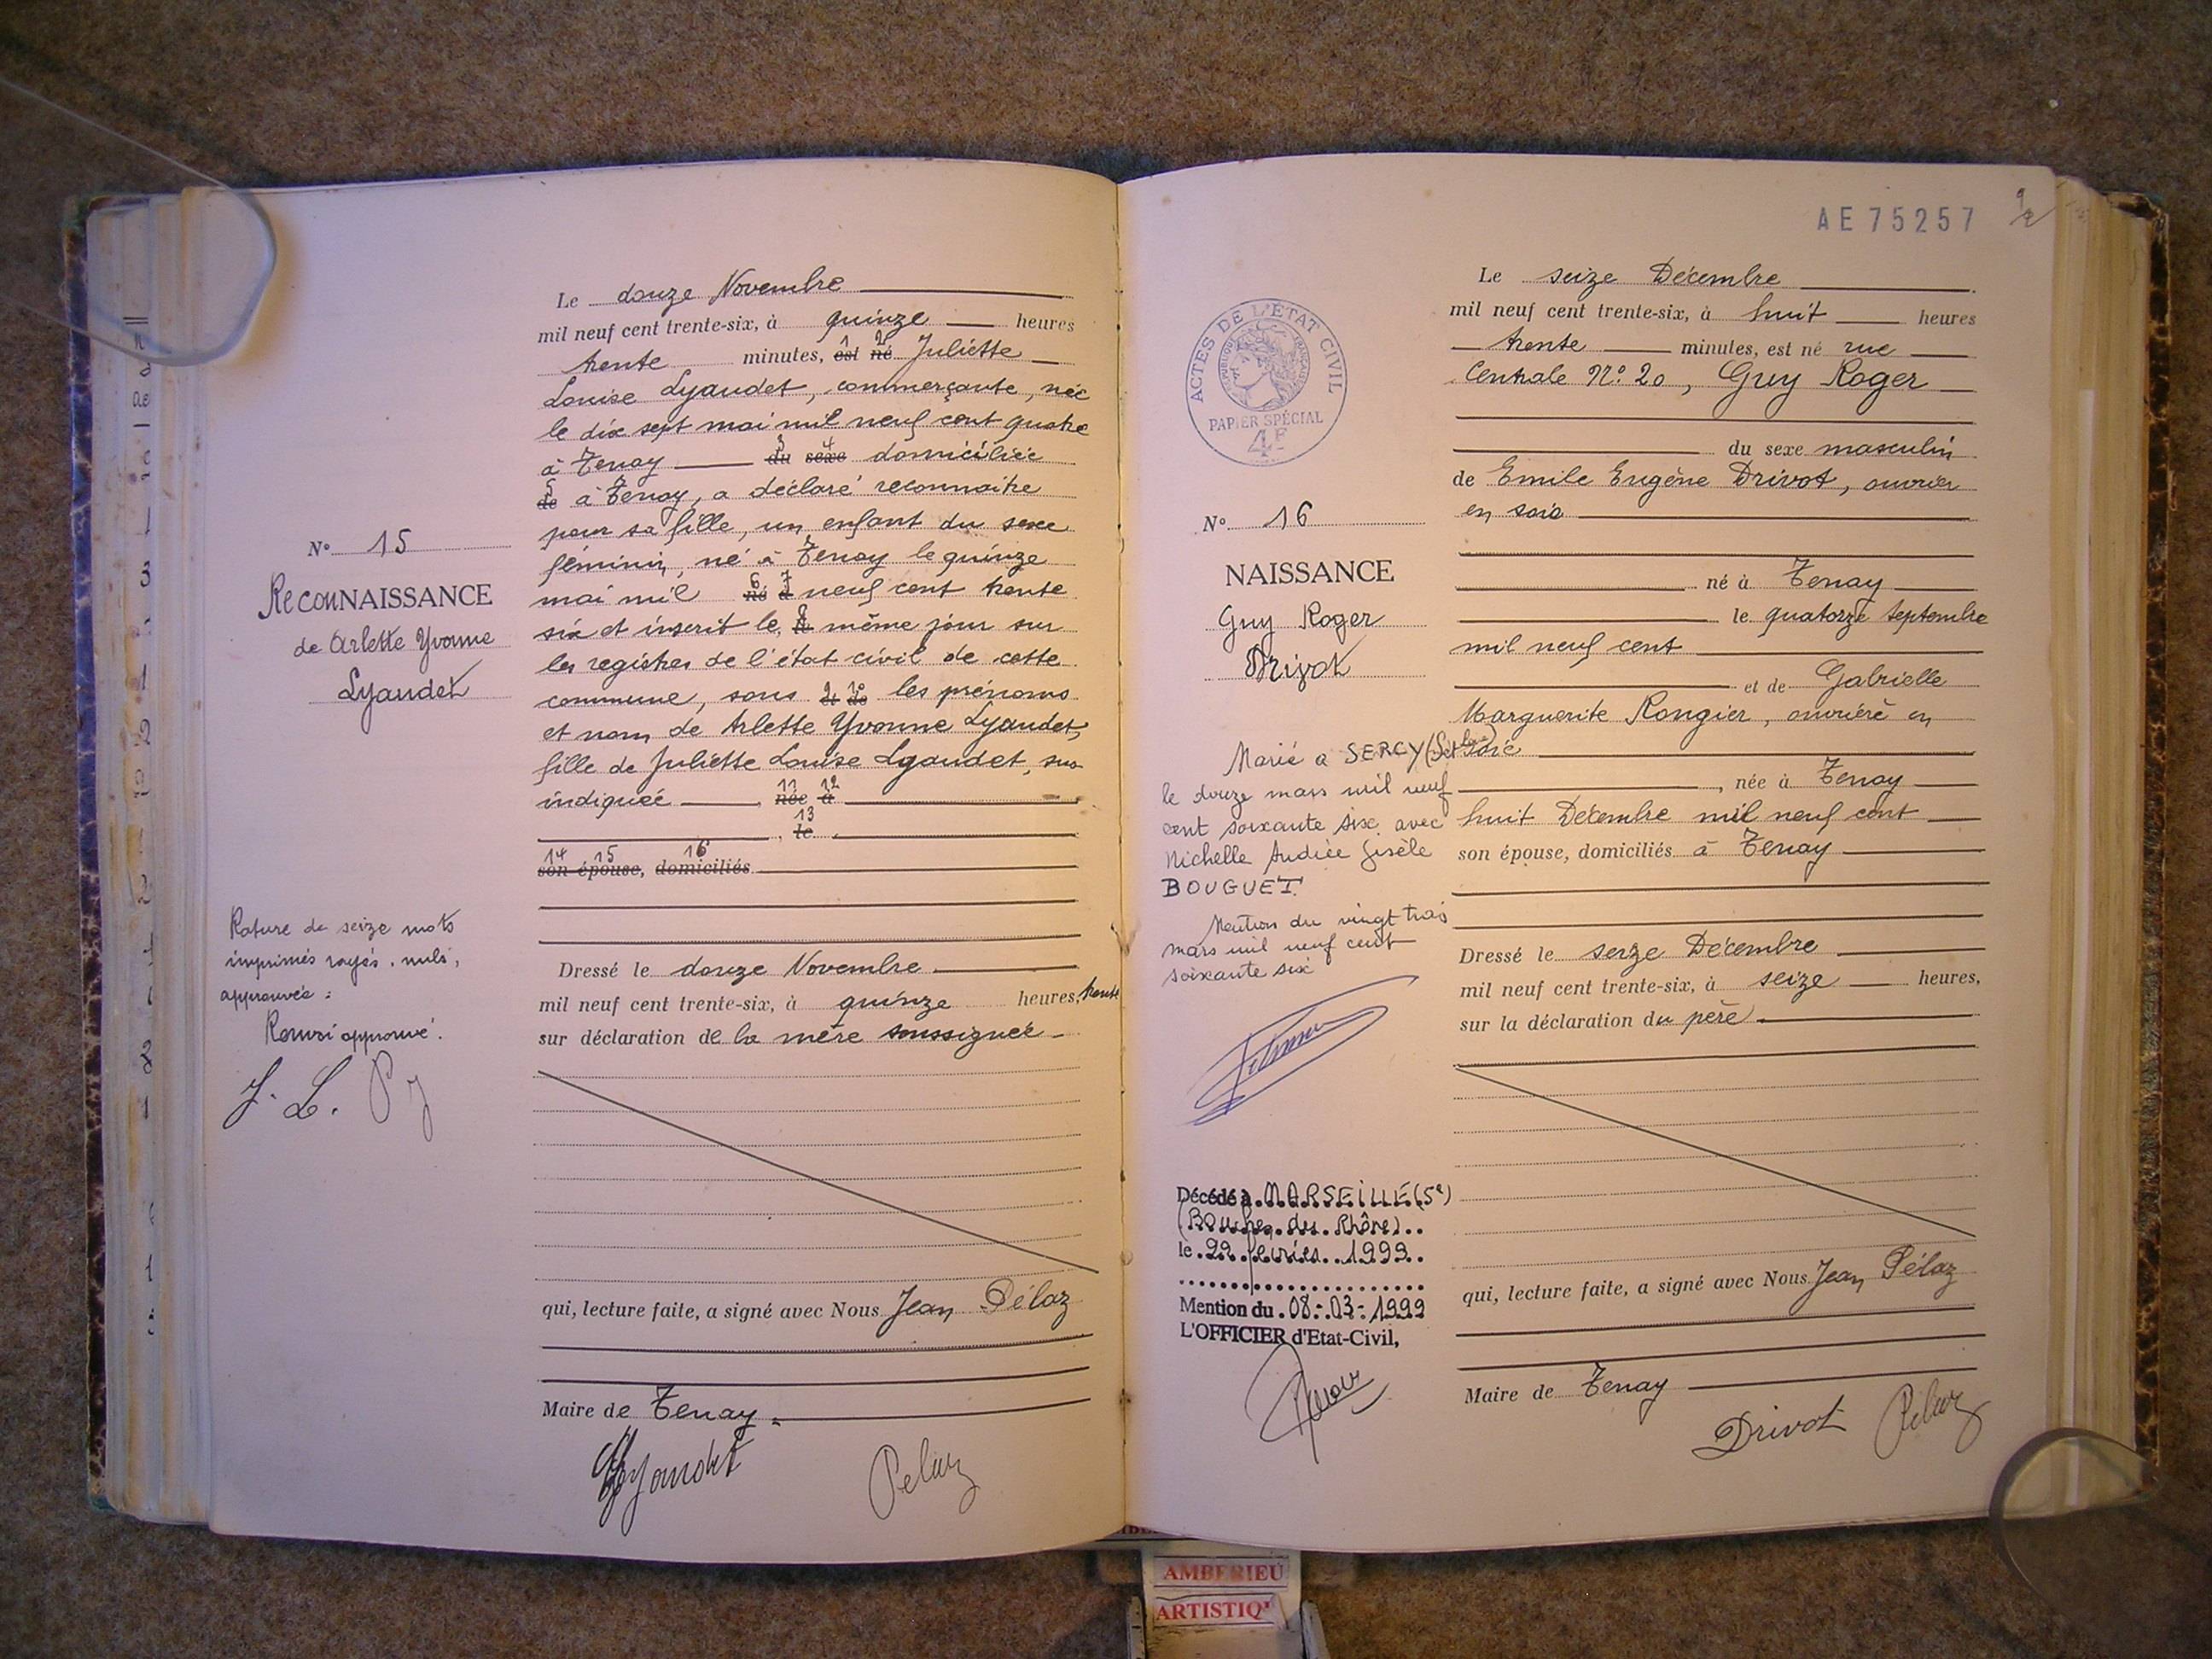 N° 15
ReconNAISSANCE
de Arlette Yvonne
Lyaudet
Rature de seize mots
imprimés rayés, nuls,
approuvée :
Renvoi approuvé.
J. L. PJ
Le douze Novembre
mil neuf cent trente-six, à quinze heures
trente minutes, est né Juliette
Louise Lyaudet, commerçante, née
le dix sept mai mil neuf cent quatre
à Tenay du sexe domiciliée
de à Tenay, a déclaré reconnaitre
pour sa fille, un enfant du sexe
féminin, né à Tenay le quinze
mai mil né à neuf cent trente
six et inscrit le même jour sur
les registres de l'état civil de cette
commune, sous et de les prénoms
et nom de Arlette Yvonne Lyaudet,
fille de Juliette Louise Lyaudet, sus
indiquée née à
le
son épouse, domiciliés
Dressé le douze Novembre
mil neuf cent trente-six, à quinze heures, trente
sur déclaration de la mère soussignée
qui, lecture faite, a signé avec Nous Jean Pélaz
Maire de Tenay
Lyaudet Pelaz
AE75257
ACTES DE L'ÉTAT CIVIL
RÉPUBLIQUE FRANÇAISE
PAPIER SPÉCIAL
4F
N° 16
NAISSANCE
Guy Roger
Drivot
Marié à SERCY (S et Loire)
le douze mars mil neuf
cent soixante six avec
Michelle Andrée Gisèle
BOUGUET.
Mention du vingt trois
mars mil neuf cent
soixante six
Décédé à MARSEILLE (5e)
(Bouches du Rhône)
le 22 février 1999
Mention du 08-03-1999
L'OFFICIER d'Etat-Civil,
Le seize Décembre
mil neuf cent trente-six, à huit heures
trente minutes, est né rue
Centrale N° 20, Guy Roger
du sexe masculin
de Emile Eugène Drivot, ouvrier
en soie
né à Tenay
le quatorze septembre
mil neuf cent
et de Gabrielle
Marguerite Rongier, ouvrière en
soie
, née à Tenay
huit Décembre mil neuf cent
son épouse, domiciliés à Tenay
Dressé le seize Décembre
mil neuf cent trente-six, à seize heures,
sur la déclaration du père
qui, lecture faite, a signé avec Nous Jean Pélaz
Maire de Tenay
Drivot Pelaz
AMBERIEU
ARTISTIQ